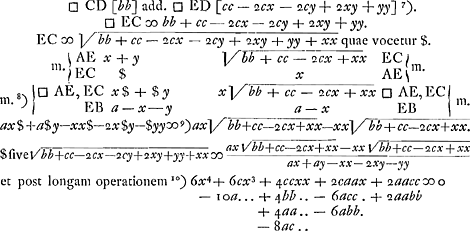 □ CD [bb] add. □ ED [cc − 2cx − 2cy + 2xy + yy] ⁷).
□ EC ∞ bb + cc − 2cx − 2cy + 2xy + yy.
EC ∞ √bb + cc − 2cx − 2cy + 2xy + yy + xx quae vocetur $.
m. { AE x + y √bb + cc − 2cx + xx EC } m.
EC $ x AE
m. ⁸) { □ AE, EC x$ + $y x√bb + cc − 2cx + xx □ AE, EC } m.
EB a − x − y a − x EB
ax$ + a$y − xx$ − 2x$y − $yy ∞ ⁹) ax√bb+cc−2cx+xx − xx√bb + cc − 2cx + xx.
$ sive √bb+cc−2cx−2cy+2xy+yy+xx ∞ ax√bb+cc−2cx+xx − xx√bb+cc−2cx+xx
ax + ay − xx − 2xy − yy
et post longam operationem ¹⁰) 6x⁴ + 6cx³ + 4ccxx + 2caax + 2aacc ∞ 0
− 10a... + 4bb .. − 6acc . + 2aabb
+ 4aa .. − 6abb.
− 8ac ..